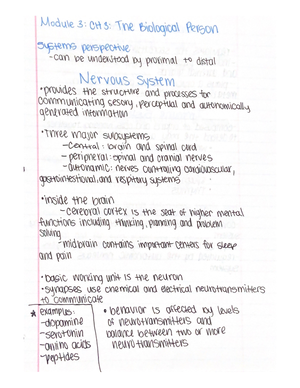 Module 3: CH 3: The Biological Person
Systems perspective
-can be understood by proximal to distal
Nervous System
•provides the structure and processes for
communicating sesory, perceptual and autonomically
generated information
•Three major subsystems
-central: brain and spinal cord
-peripheral: spinal and cranial nerves
-autonomic: nerves controlling cardiovascular,
gastrointestional, and respitory systems
•inside the brain
-cerebral cortex is the seat of higher mental
functions including thinking, planning and problem
solving
-midbrain contains important centers for sleep
and pain
•basic working unit is the neuron
•synapses use chemical and electrical neurotransmitters
to communicate
* examples:
-dopamine
-serotonin
-amino acids
-peptides
• behavior is affected by levels
of neurotransmitters and
balance between two or more
neurotransmitters